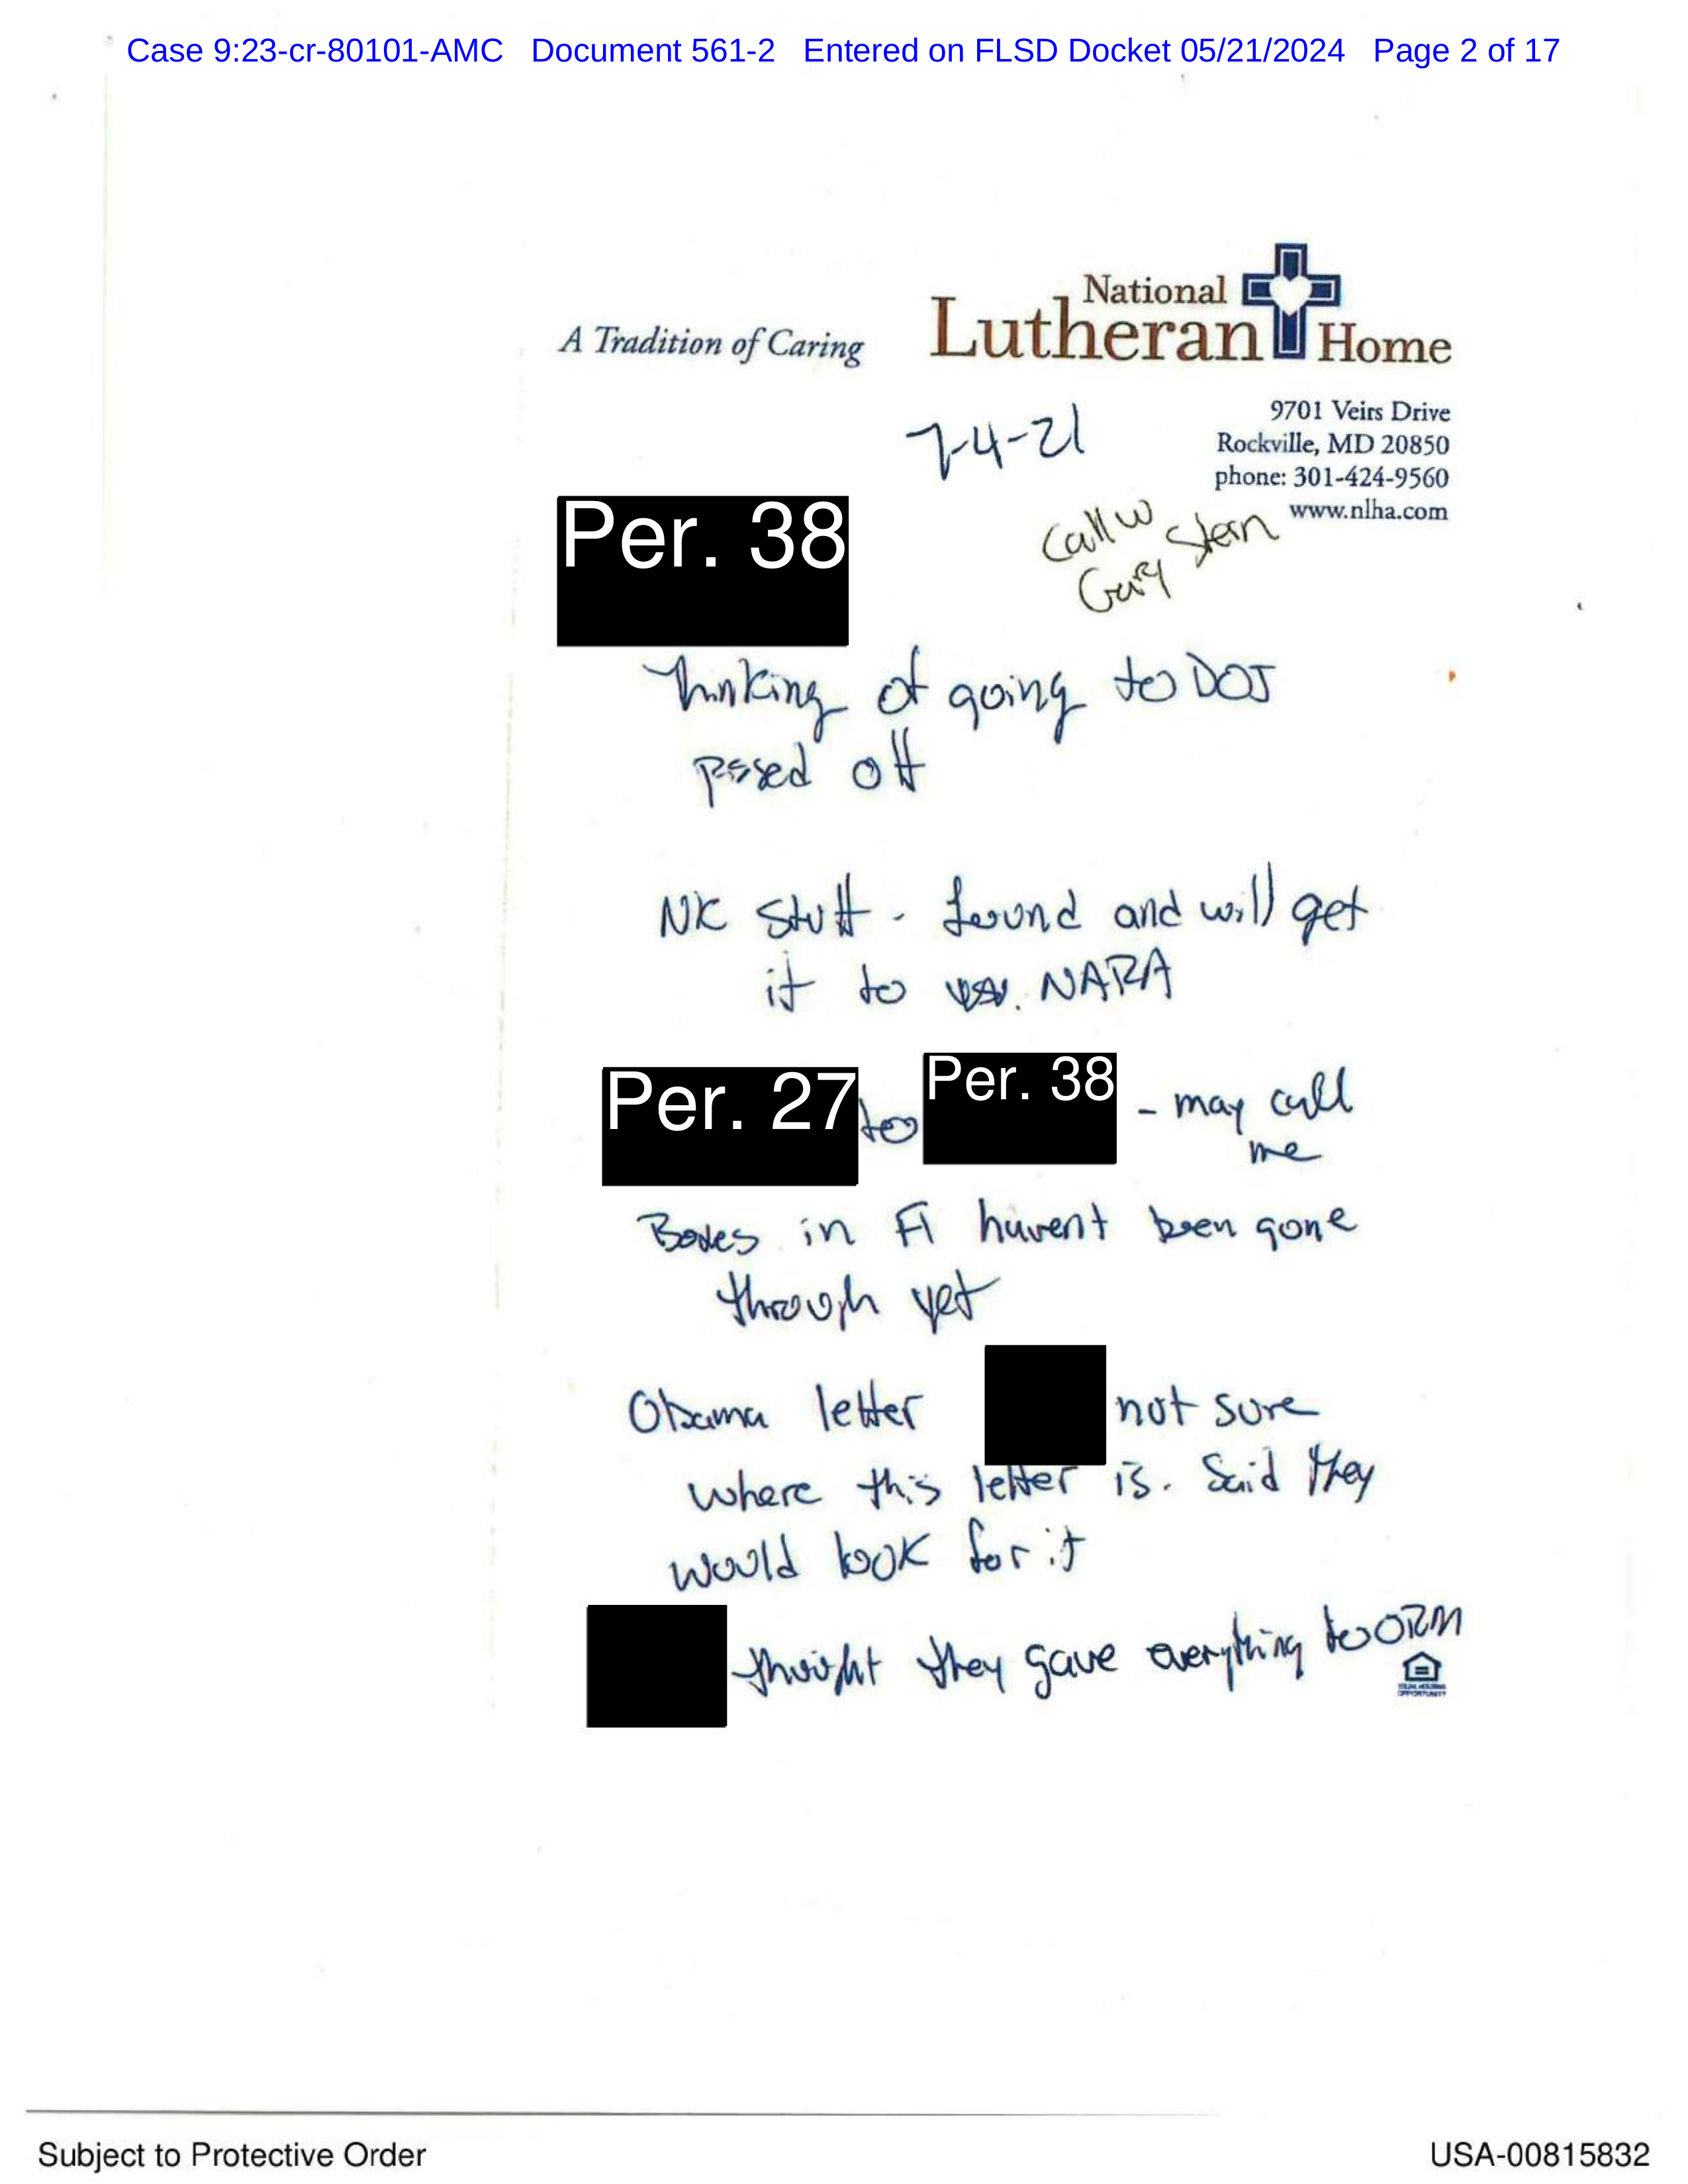 Case 9:23-cr-80101-AMC Document 561-2 Entered on FLSD Docket 05/21/2024 Page 2 of 17
A Tradition of Caring
National
Lutheran Home
9701 Veirs Drive
Rockville, MD 20850
phone: 301-424-9560
www.nlha.com
7-4-21
Call w
Gary Stern
Per. 38
Thinking of going to DOJ
pissed off
NK stuff - found and will get
it to NARA
Per. 27 to Per. 38 - may call
me
Boxes in Fl havent been gone
through yet
Obama letter not sure
where this letter is. Said they
would look for it
thought they gave everything to ORM
EQUAL HOUSING
OPPORTUNITY
Subject to Protective Order
USA-00815832